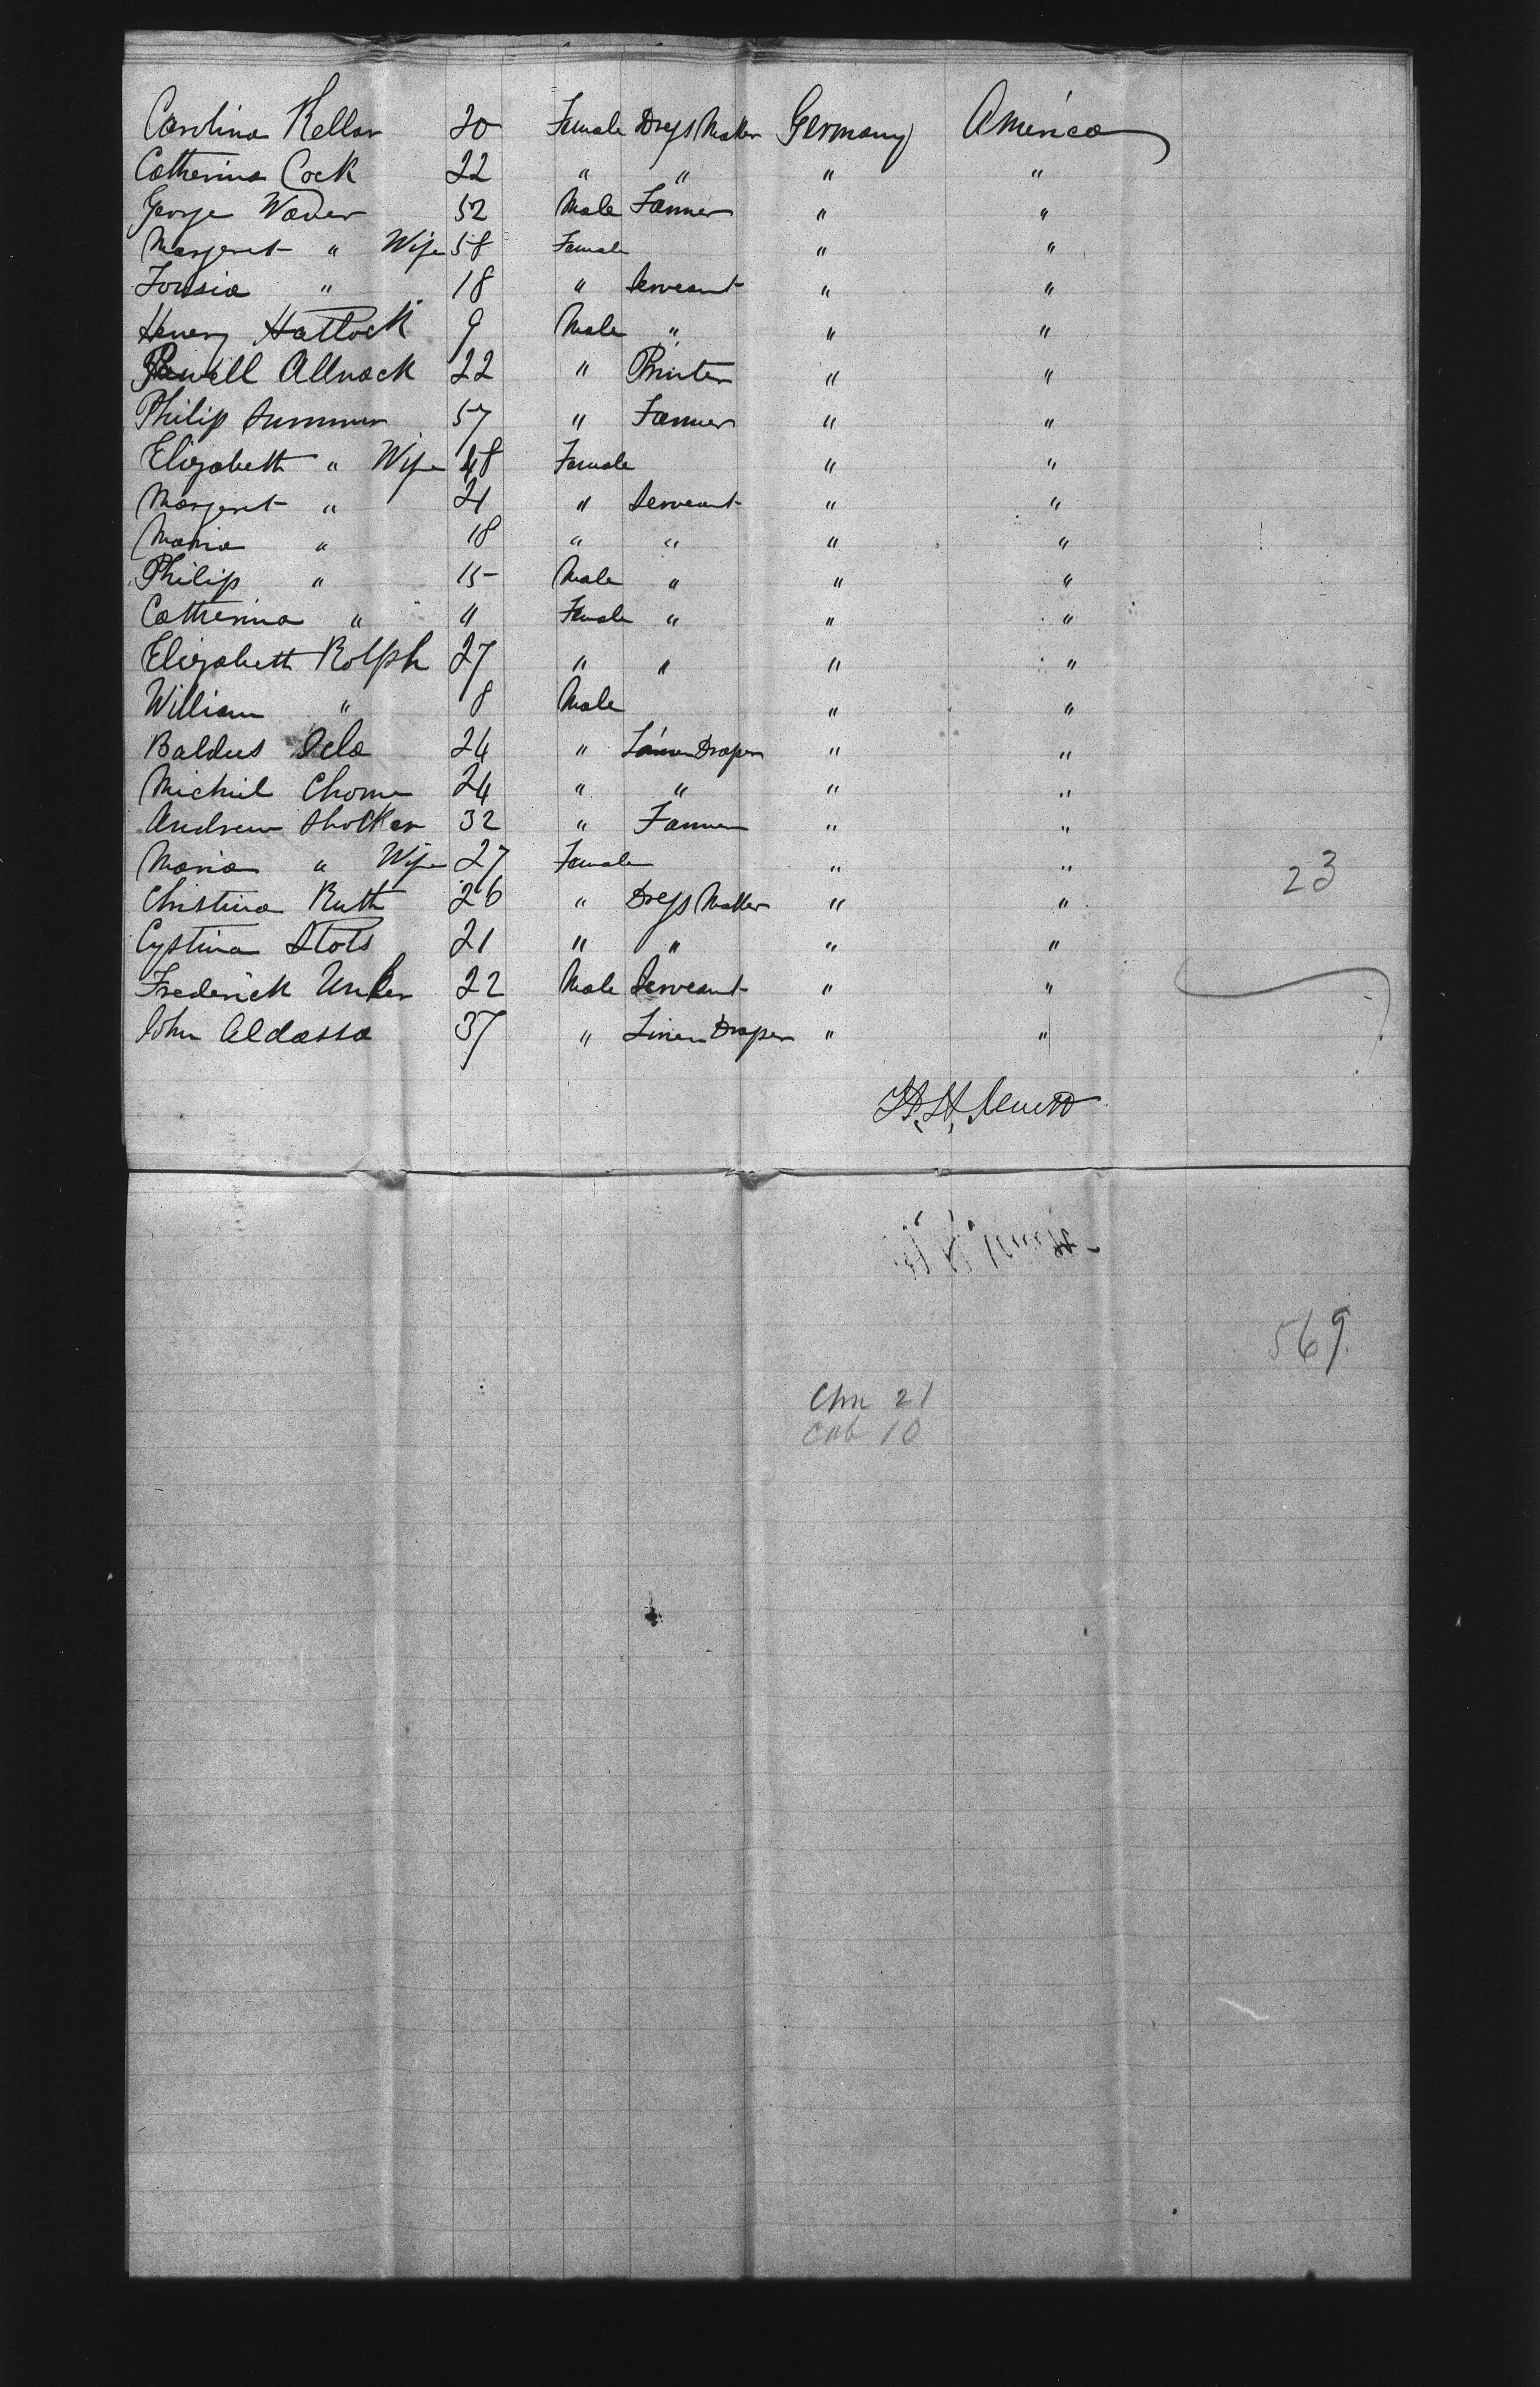 Carolina Kellar 20 Female Dress Maker Germany America
Catherina Cock 22 " " " "
George Waver 52 Male Farmer " "
Margeret " Wife 58 Female " "
" 18 " Serveant " "
Henery Hattock 9 Male " " "
Powell Allnack 22 " Printer " "
Philip Summer 57 " Farmer " "
Elizabeth " Wife 48 Female " "
Margeret " 21 " Serveant " "
Maria " 18 " " " "
Philip " 15 Male " " "
Catherina " " Female " " "
Elizabeth Rolph 27 " " " "
William " 8 Male " "
Baldus 24 " Linen Draper " "
Michiel Chome 24 " " " "
Andrew Shocker 32 " Farmer " "
Maria " Wife 27 Female " "
23
Christina Ruth 26 " Dress Maker " "
Cystina Stots 21 " " " "
Frederick Unker 22 Male Serveant " "
John Aldassa 37 " Linen Draper " "
569
Chn 21
Cab 10